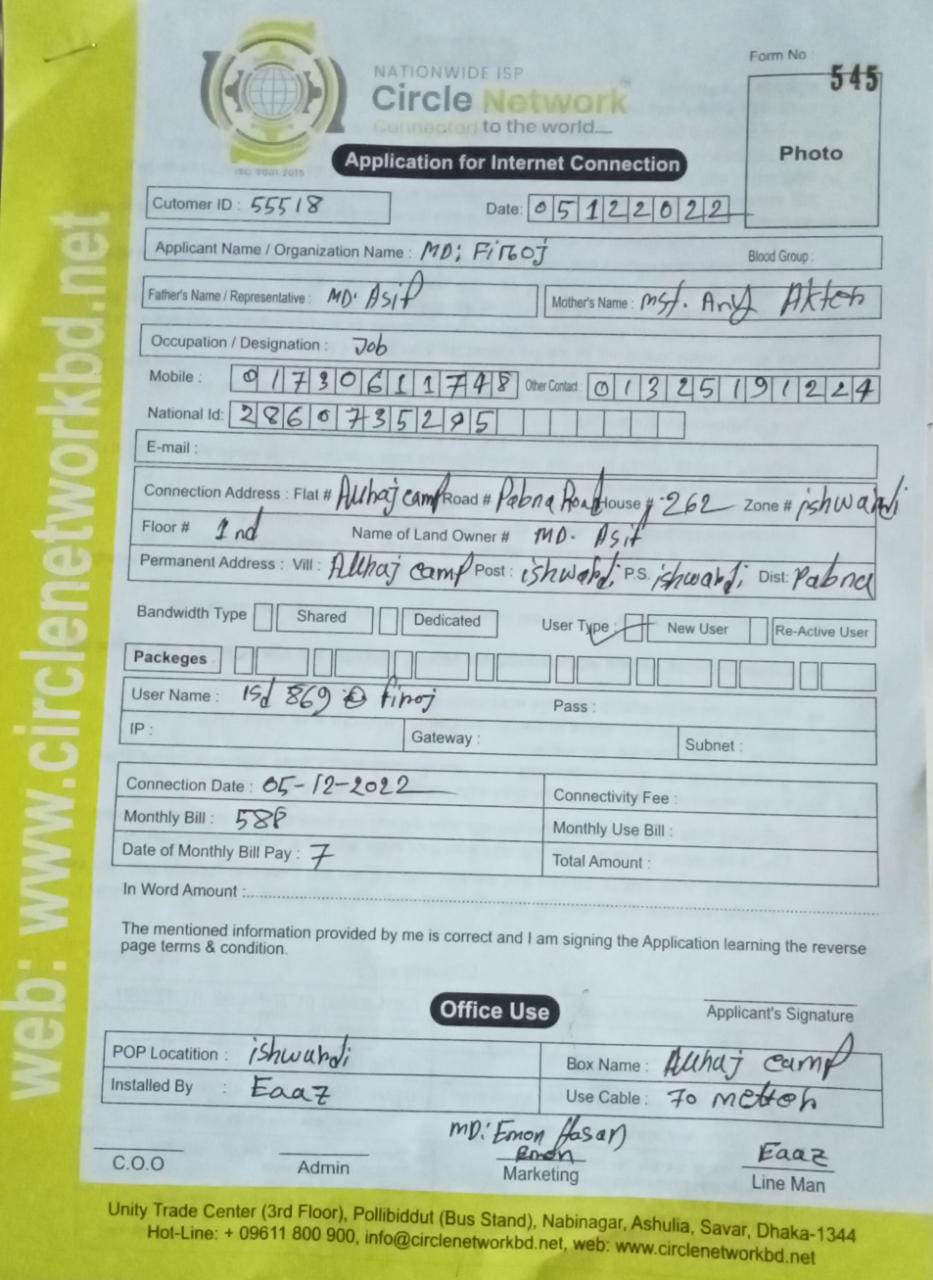 Form No :
545
NATIONWIDE ISP
Circle Network
Connected to the world....
ISO 9001:2015
Photo
Application for Internet Connection
Cutomer ID : 55518 Date: 05122022
Applicant Name / Organization Name : MD: Firoj Blood Group :
Father's Name / Representative : MD. Asif Mother's Name : Mst. Any Akter
Occupation / Designation : Job
Mobile : 01730611748 Other Contact : 01325191224
National Id: 2860735295
E-mail :
Connection Address : Flat # Alhaj camp Road # Pabna Road House # 262 Zone # ishwardi
Floor # 1nd Name of Land Owner # MD. Asif
Permanent Address : Vill : Alhaj camp Post : ishwardi P.S. ishwardi Dist: Pabna
Bandwidth Type Shared Dedicated User Type : New User Re-Active User
Packeges
User Name : isd 869 @ firoj Pass :
IP : Gateway : Subnet :
Connection Date : 05-12-2022 Connectivity Fee :
Monthly Bill : Monthly Use Bill :
Date of Monthly Bill Pay : 7 Total Amount :
In Word Amount :
The mentioned information provided by me is correct and I am signing the Application learning the reverse
page terms & condition.
Applicant's Signature
Office Use
POP Locatition : ishwardi Box Name : Alhaj camp
Installed By : Eaaz Use Cable : 70 metter
MD: Emon Hasan
Emon Eaaz
C.O.O Admin Marketing Line Man
Unity Trade Center (3rd Floor), Pollibiddut (Bus Stand), Nabinagar, Ashulia, Savar, Dhaka-1344
Hot-Line: + 09611 800 900, info@circlenetworkbd.net, web: www.circlenetworkbd.net
web: www.circlenetworkbd.net